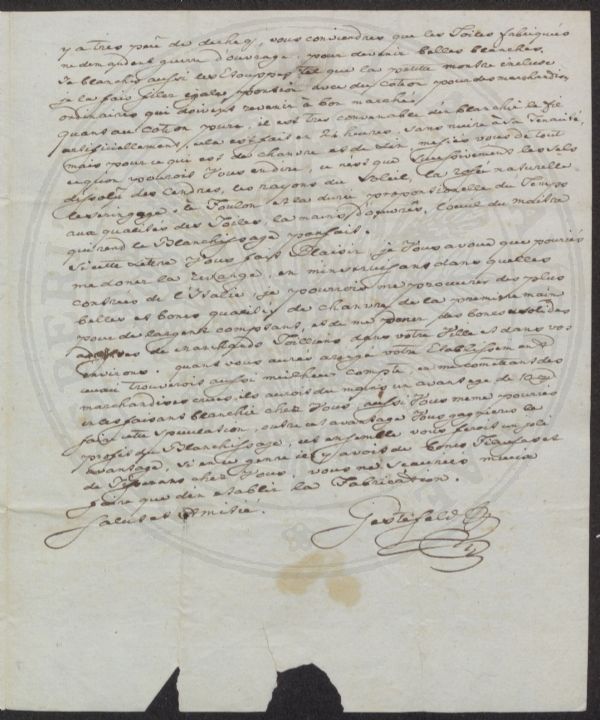 y a tres peu de dechez, vous conviendres que les Toiles fabriqués
ne demandent guerre d'ouvrage, pour devenir belles blanches.
Je blanchis aussi les Etouppes tel que la petite montre incluse
je la fais filer egale portion avec du Coton pour des marchandises
ordinaires qui doivent revenir à bon marché.
quant au Coton pure, il est tres convenable d'en blanchir le fil
artificiellement, cela est fait en 24 heures, sans nuire à sa tenacité,
mais pour ce qui est du chanvre et du lin, mefiés vous de tout
ce qu'on pouroit Vous en dire, ce n'est que les sels
dissolú des Cendres, les rayons du Soleil, la rosée naturelle
le Foulon et la durée proportionnelle du Temps
aux qualités des Toiles, la mains d'oeuvre, l'oeuil du maitre
qui rend le Blanchissage parfait.
Si cette Lettre Vous fait Plaisir, je Vous avoue que pouriés
me doner la rechange, en m'instruisant dans quelles
contrées de l'Italie je pourrois me procurer des plus
belles et bones qualités de chanvre de la premiere main
pour de l'argent comptant, et de me doner des bones et solides
adresses de marchands Toilliers dans votre Ville et dans vos
environs. quant vous aures arrangé votre Etablissement
ceux ci trouveroit aussi meilheur Compte, en me comtant des
marchandises crues, ils auroit du moins un avantage de 10
en les faisant blanchir chez Vous, aussi Vous meme pourriés
faire cette speculation, outre cet avantage Vous gagneriés le
profit du Blanchissage, cet ensemble vous feroit un joli
avantage. Si en ce genre il y avoit de bons Fileuses et
de Tisserans chez Vous, vous ne scauriés mieux
faire que d'en establir la Fabrication.
Salut et Amitié.